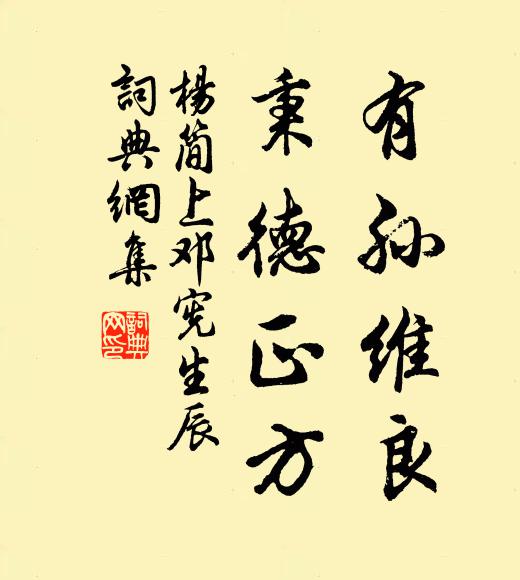 有孙维良
秉德正方
楊简上邓宪生辰
詞典網集
詞典
网印